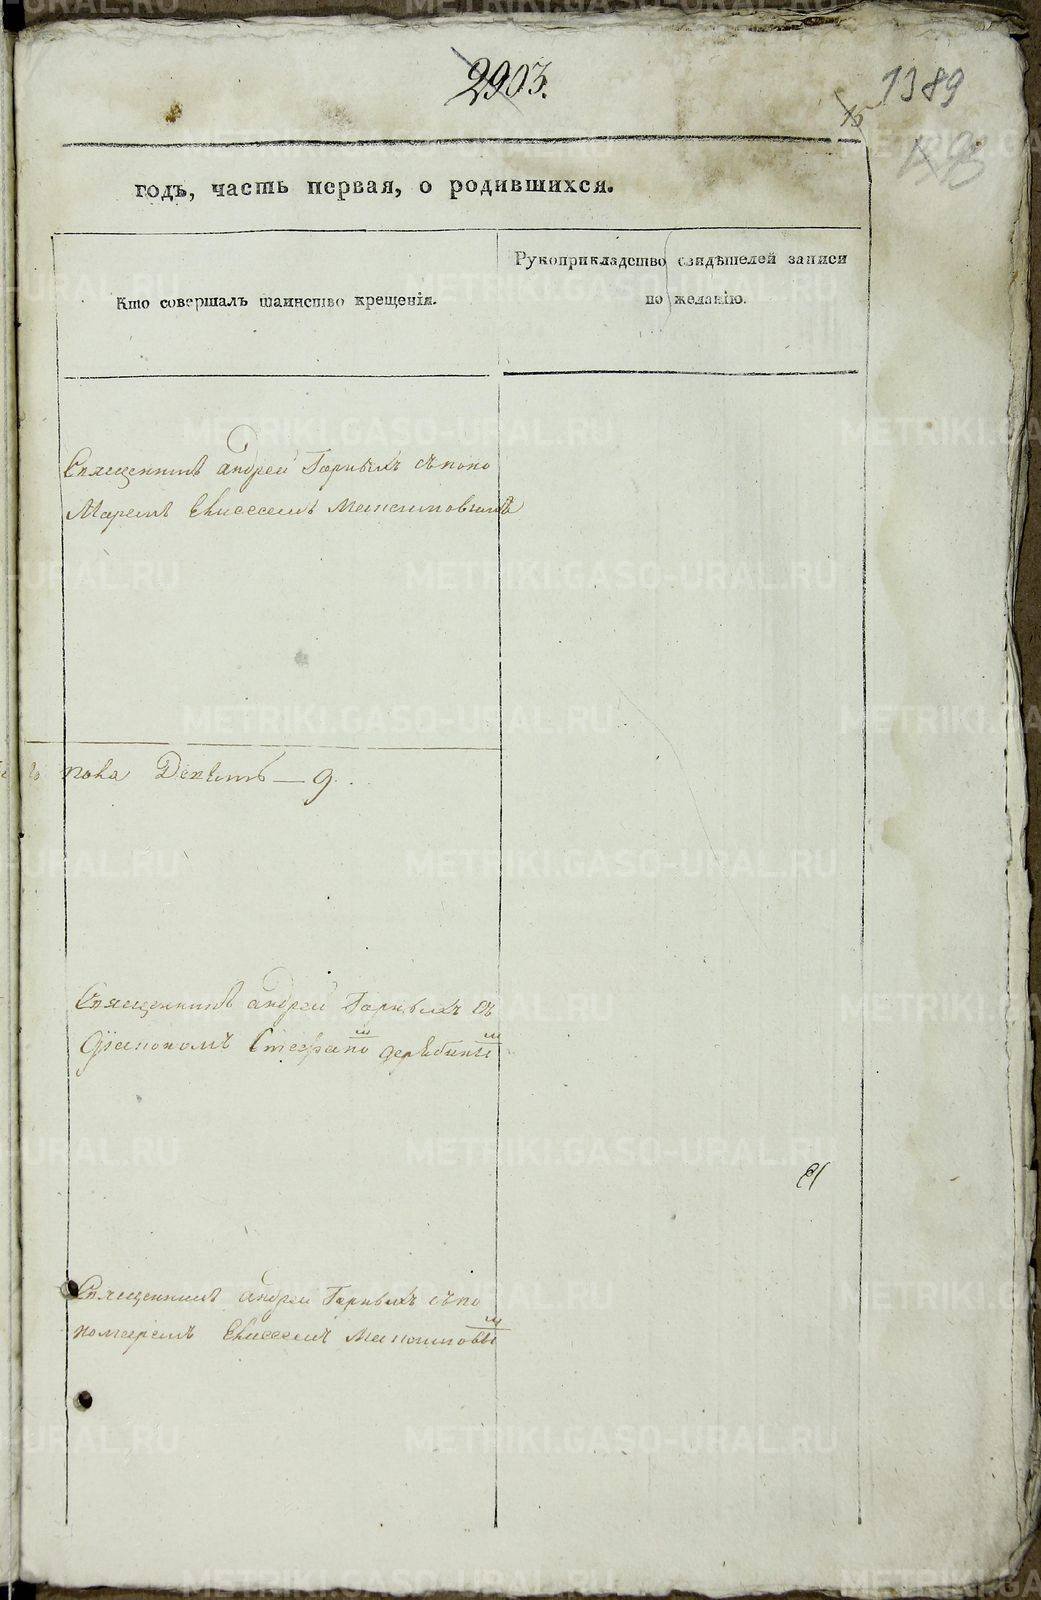 2903.
1389
15
годъ, часть первая, о родившихся.
Кто совершалъ таинство крещенія.
Рукоприкладство свидѣтелей записи
по желанію.
Священникъ андрей Горныхъ съ поно
Маремъ Елисеемъ Максимовымъ
пола Девять — 9.
Священникъ андрей Горныхъ съ
Діакономъ Стефаномъ дерябинымъ
Священникъ андрей Горныхъ съ по
номаремъ Елисеемъ Максимовым
METRIKI.GASO-URAL.RU